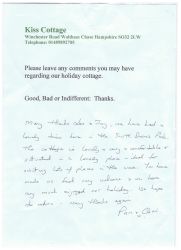 Kiss Cottage
Winchester Road Waltham Chase Hampshire SO32 2LW
Telephone: 01489892785
Please leave any comments you may have
regarding our holiday cottage.
Good, Bad or Indifferent: Thanks.
Many thanks Jay, we have had a
lovely time here in the South Downs Park.
The cottage is lovely &
situated in a lovely place - ideal for
visiting lots of places in the area. You have
made us feel very welcome & we have
very much enjoyed our holiday. We hope
to many thanks again